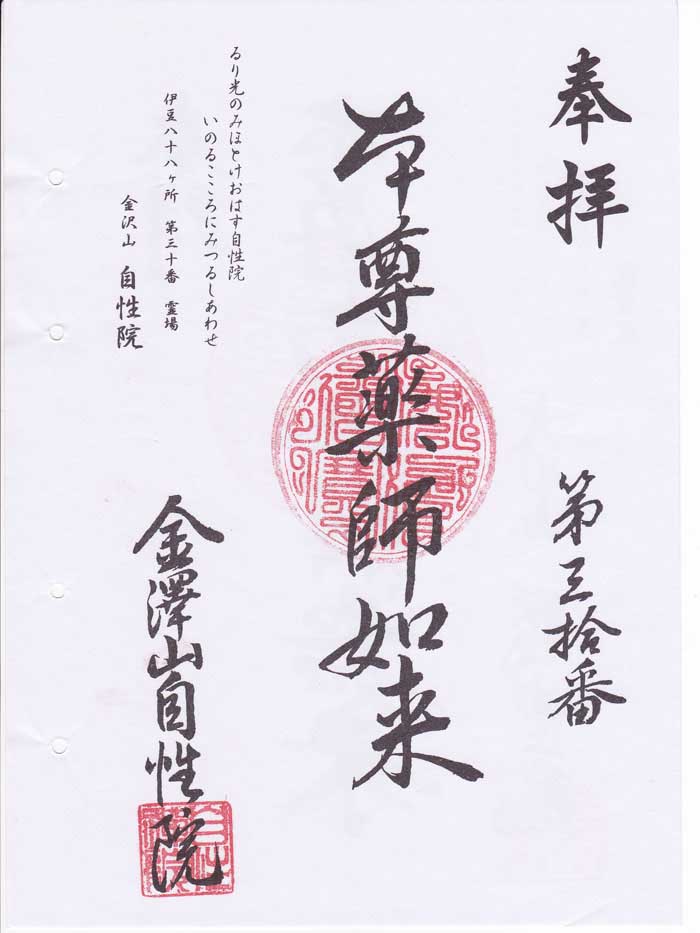 奉拝
第三拾番
本尊薬師如来
るり光のみほとけおはす自性院
いのるこころにみつるしあわせ
伊豆八十八ヶ所 第三十番 霊場
金沢山 自性院
金澤山自性院